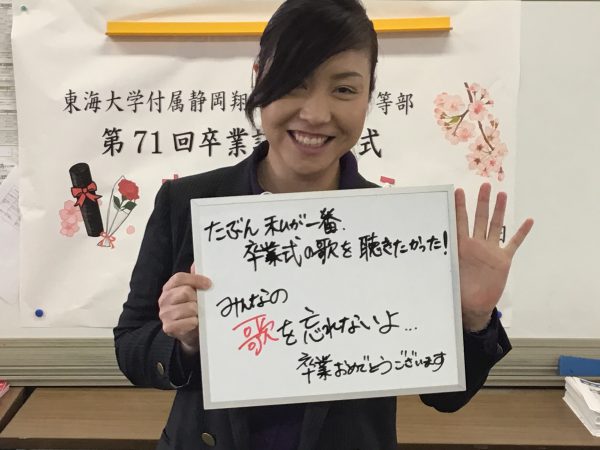 東海大学付属静岡翔
等部
第71回卒業
式
たぶん 私が一番、
卒業式の歌を 聴きたかった!
みんなの
歌を忘れないよ…
卒業おめでとうございます